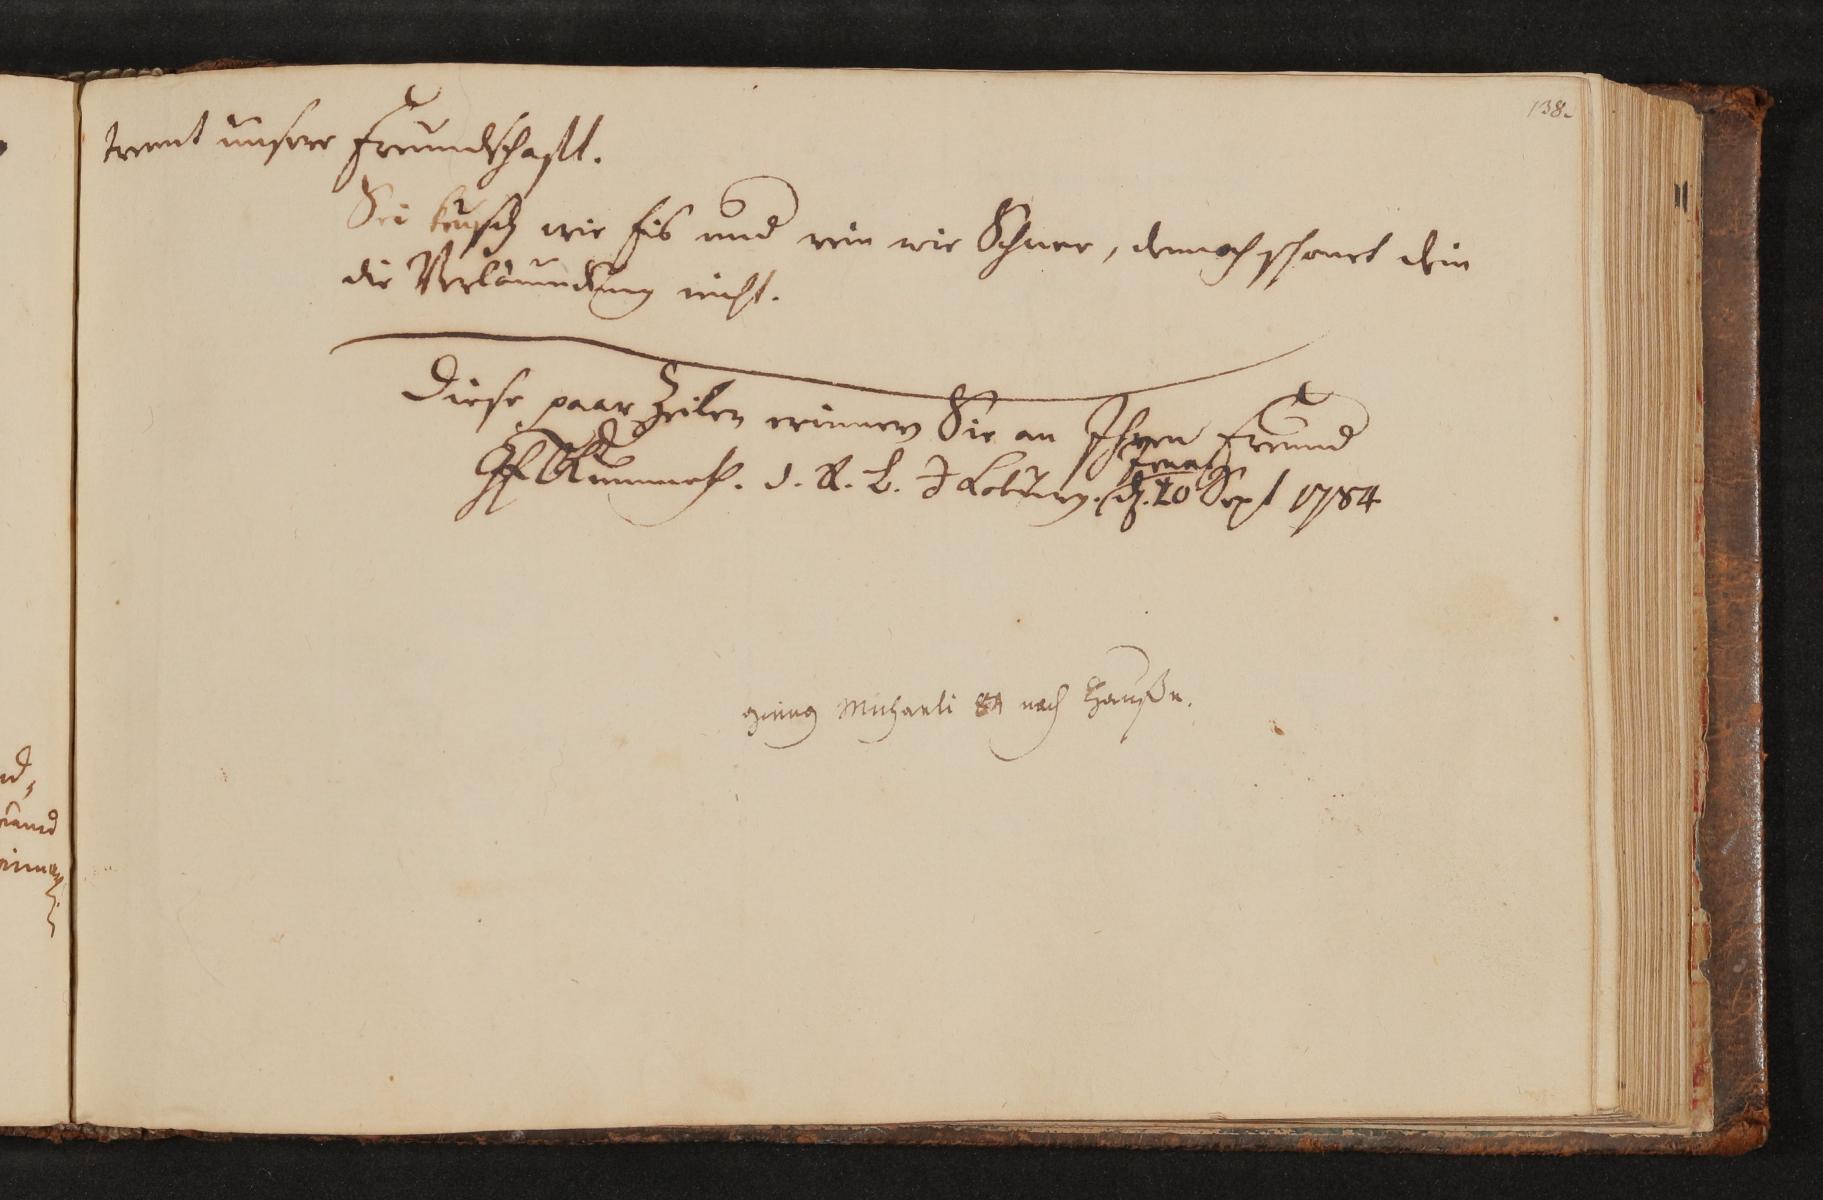 138.
trennt unsere Freundschafft.
Sei keusch wie Eis und rein wie Schnee, dennoch schonet dein
die Verläumdung nicht.
Diese paar Zeilen erinnern Sie an Ihren Freund
d. R. B. Coburg. Jena d. 20 Sept 1784
gieng Michaeli 84 nach Hauße.